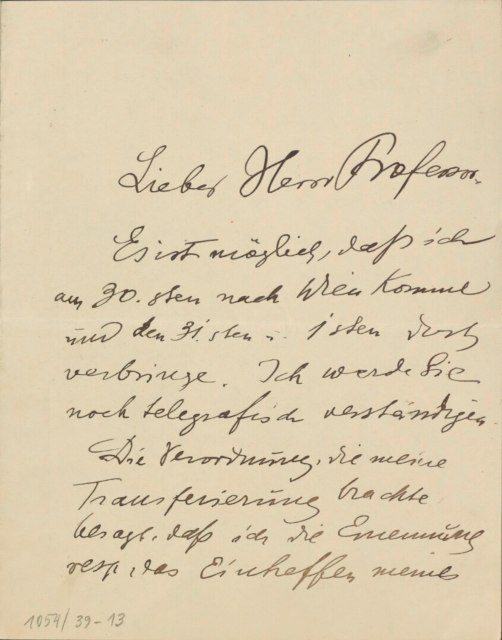 Lieber Herr Professor.
Es ist möglich, daß ich
am 30.sten nach Wien komme
und den 31.sten u. 1sten dort
verbringe. Ich werde Sie
noch telegrafisch verständigen.
Die Verordnung, die meine
Transferierung brachte
besagt, daß ich die Ernennung
resp. das Eintreffen meines
1054/39-13